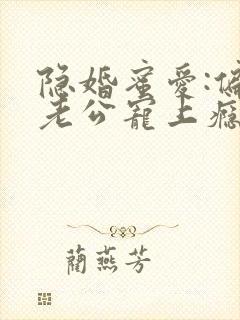 隐婚蜜爱:偏
老公宠上瘾
蔺燕芳